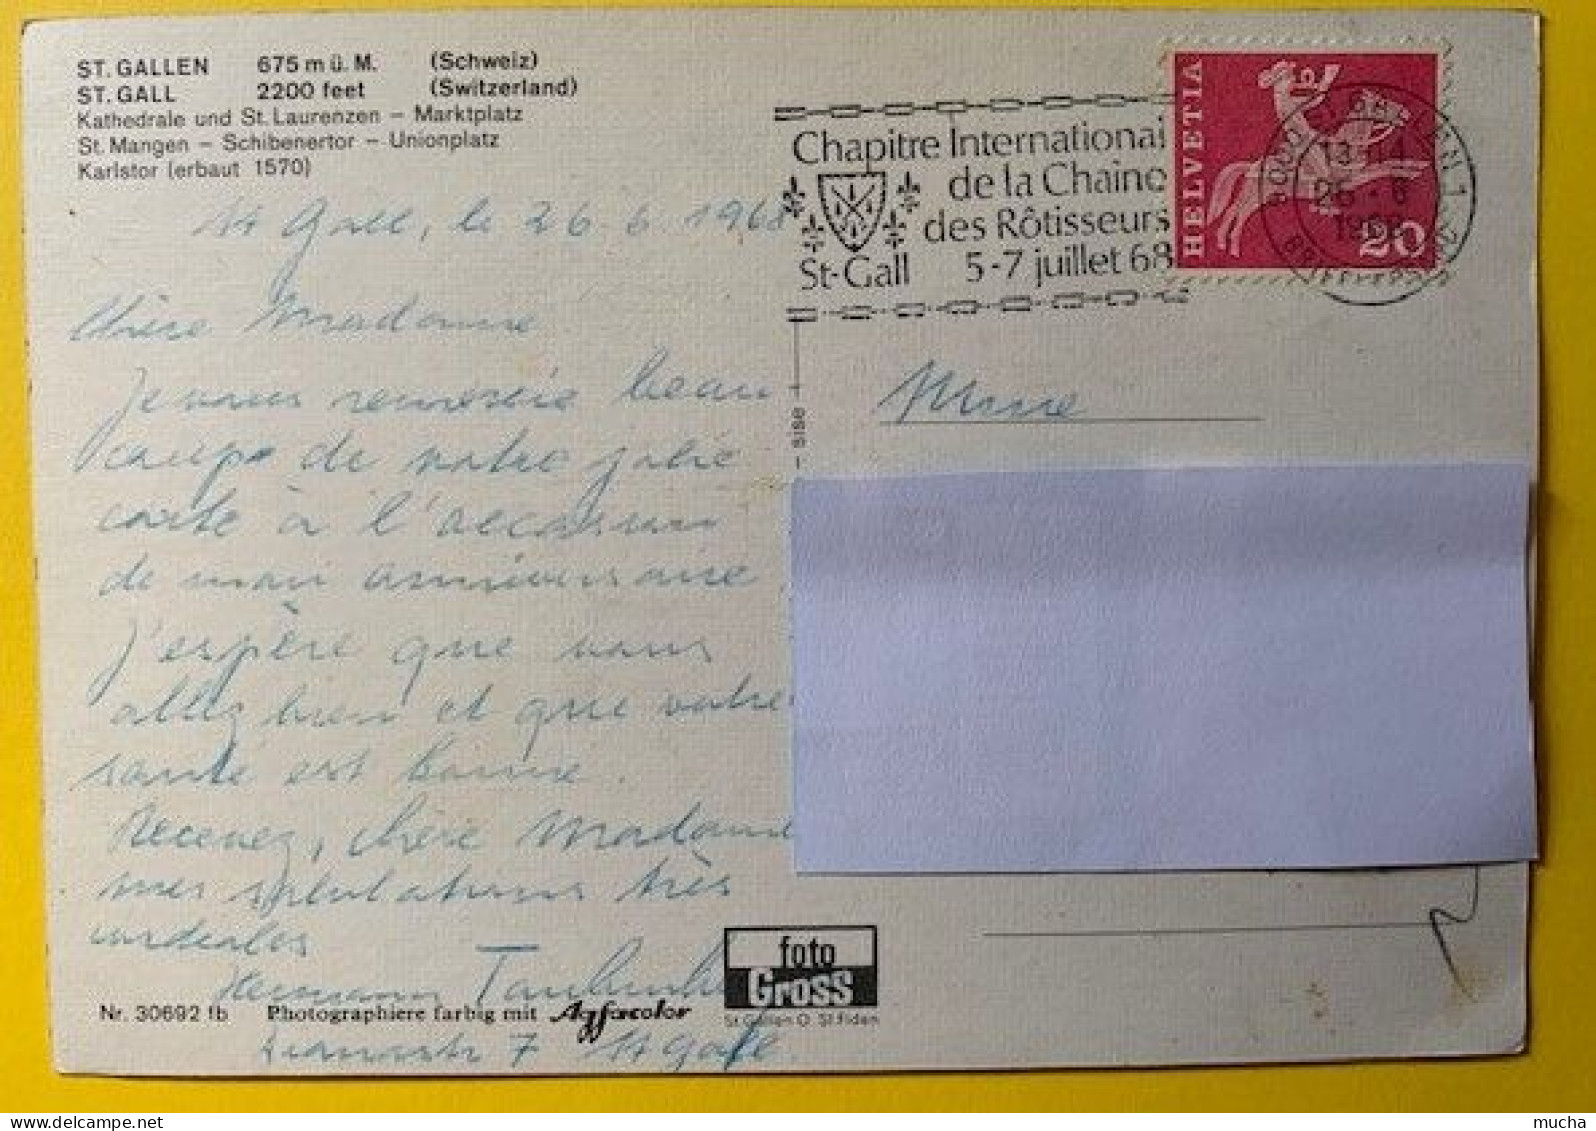 ST. GALLEN 675 m ü. M. (Schweiz)
ST. GALL 2200 feet (Switzerland)
Kathedrale und St. Laurenzen – Marktplatz
St. Mangen – Schibenertor – Unionplatz
Karlstor (erbaut 1570)
Chapitre International
de la Chaîne
des Rôtisseurs
St-Gall 5-7 juillet 68
HELVETIA
20
26.-6
1968
St Gall, le 26.6.1968
Chère Madame
Je vous remercie beau-
coup de votre jolie
carte à l'occasion
de mon anniversaire
J'espère que vous
allez bien et que votre
santé est bonne.
Recevez, chère Madame
mes salutations très
cordiales
Hermann
7 St Gall
Mme
- sise -
Nr. 30692 fb Photographiere farbig mit Agfacolor
foto
Gross
St. Gallen O. St. Fiden
mucha